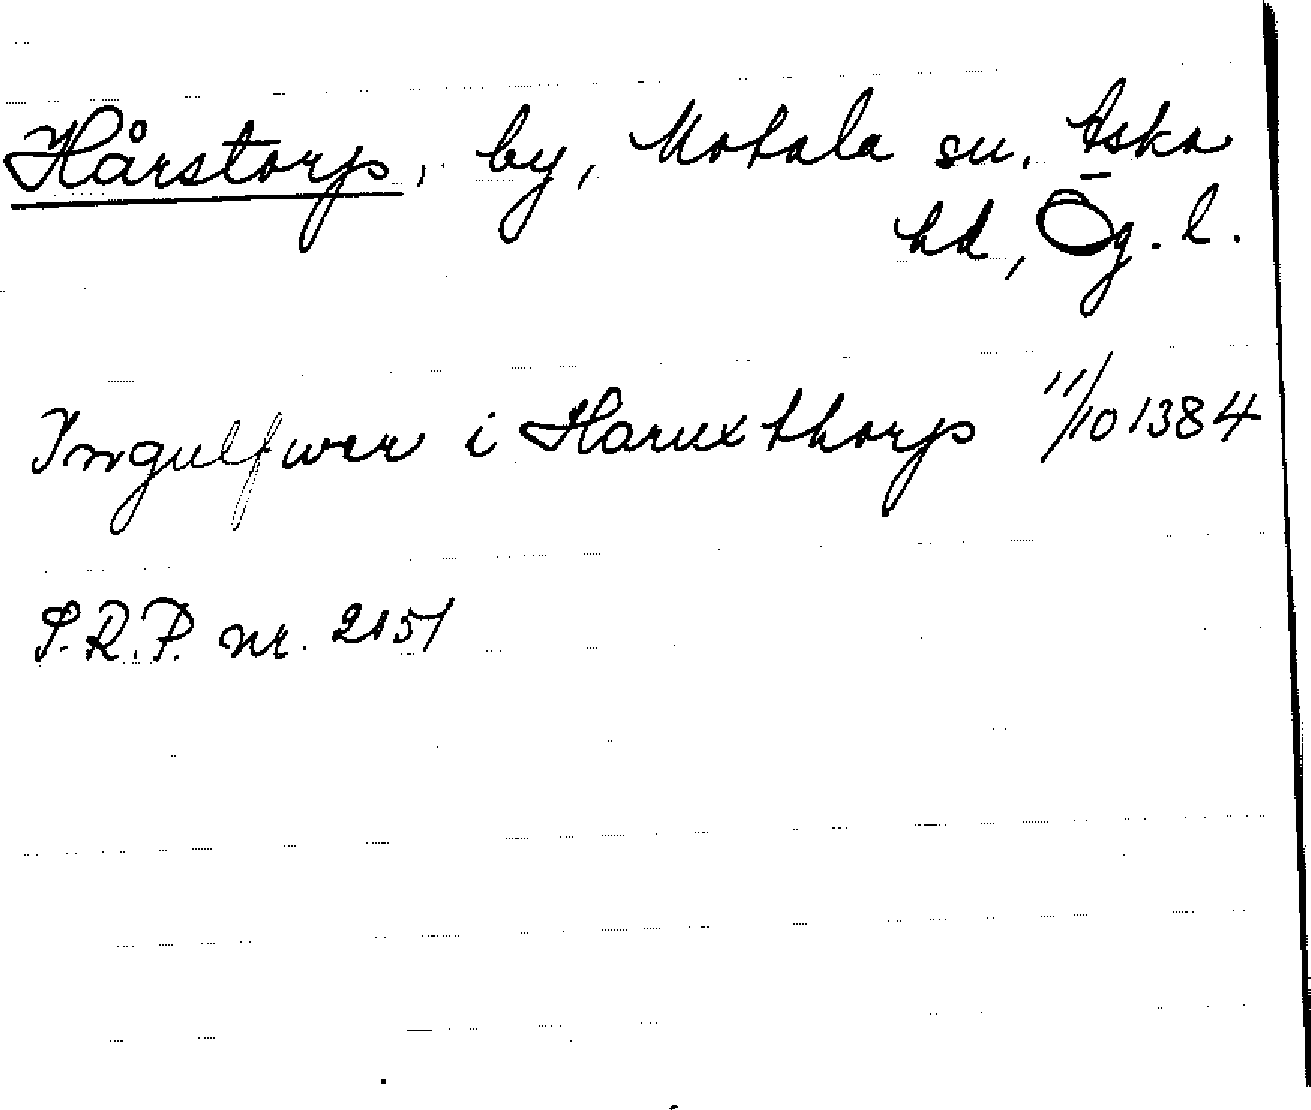 Hårstorp, by, Motala sn. Aska
hd, Ög. l.
Ingulfwer i Haruxthorp 11/10 1384
S.R.P. nr. 2151